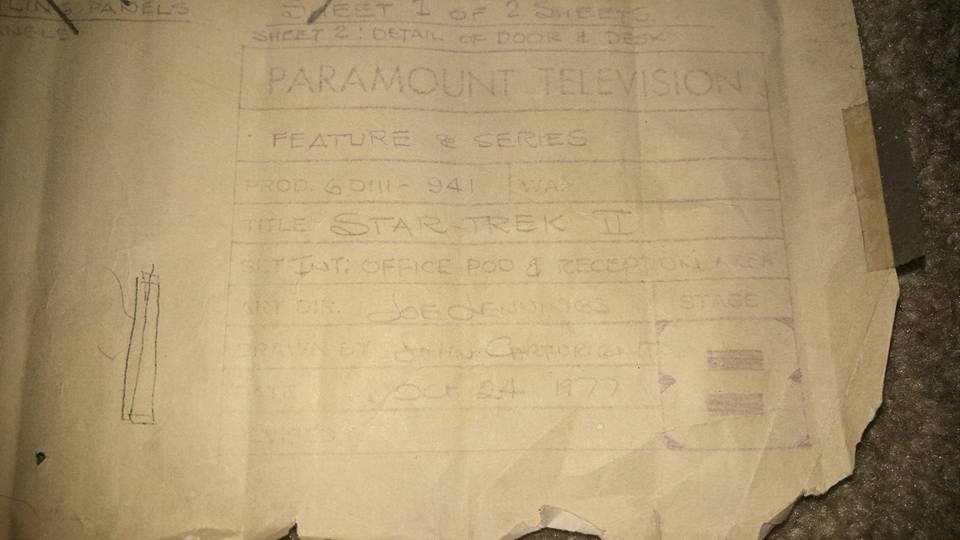 LING PANELS
SHEET 1 OF 2 SHEETS
SHEET 2: DETAIL OF DOOR & DESK
PARAMOUNT TELEVISION
FEATURE & SERIES
PROD. 941
TITLE STAR TREK II
SET INT: OFFICE POD & RECEPTION AREA
ART DIR. JOE JENNINGS STAGE
DRAWN BY JOHN CARTWRIGHT
DATE OCT 24 1977